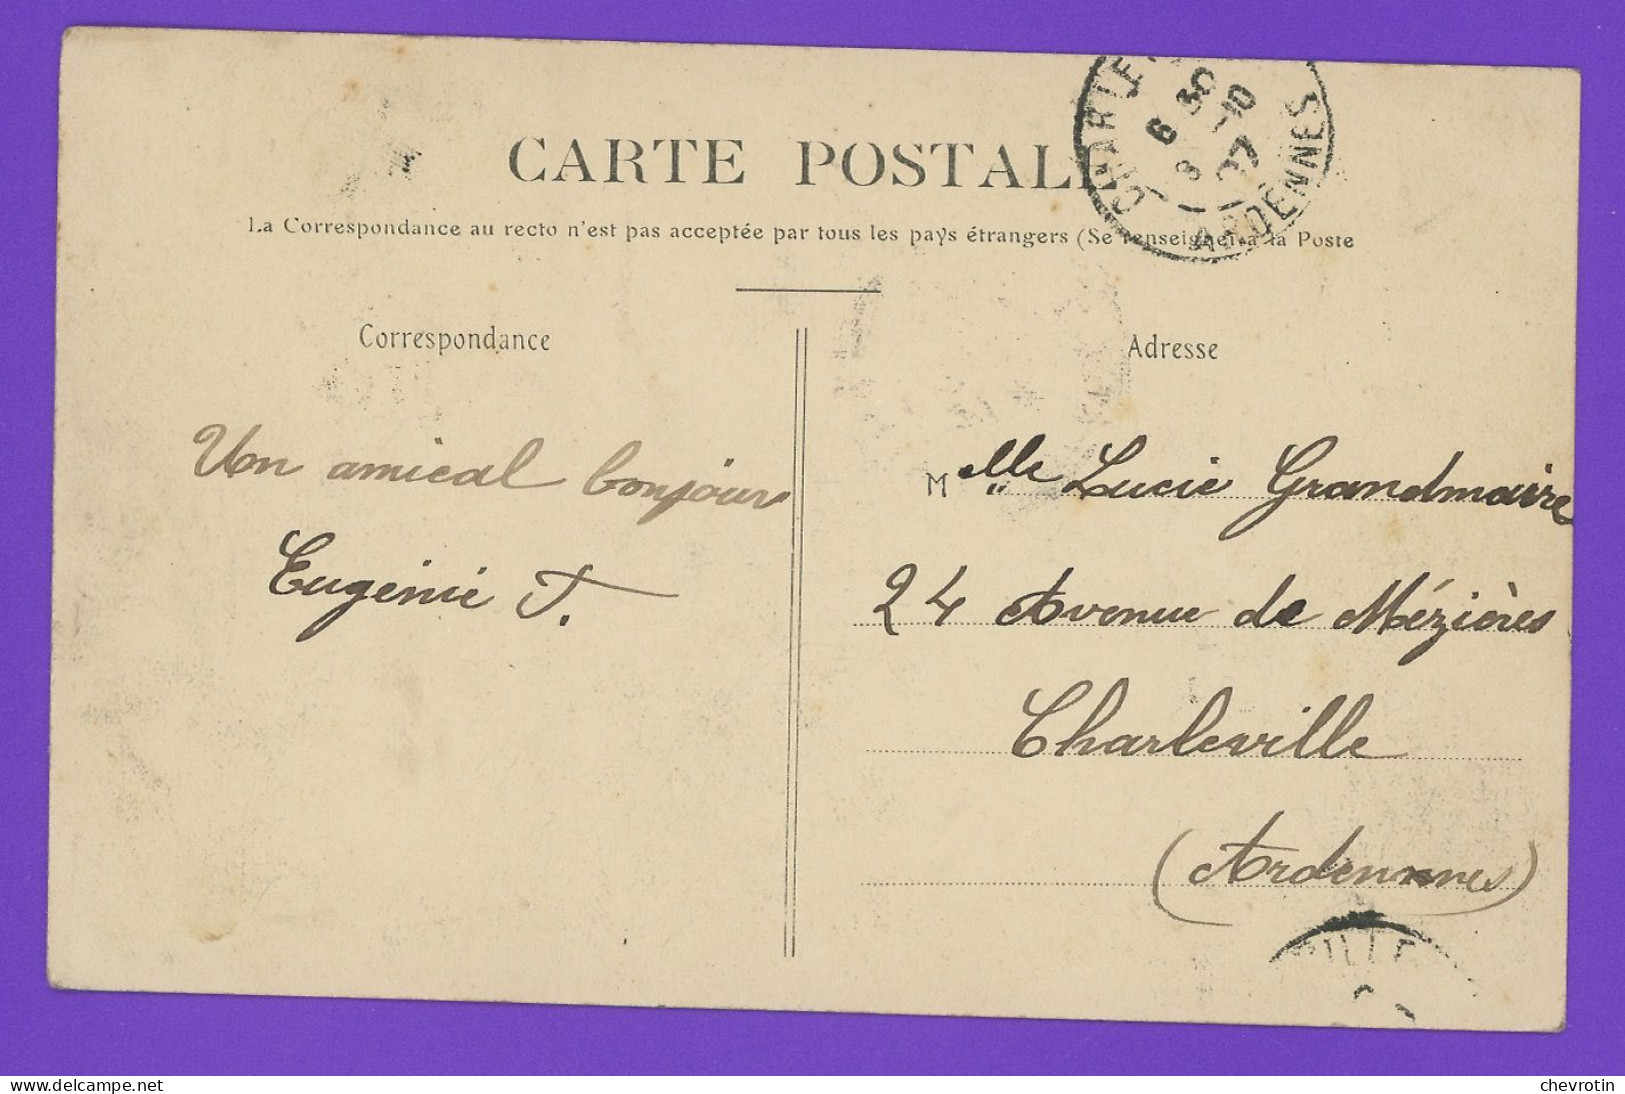 CARTE POSTALE
La Correspondance au recto n'est pas acceptée par tous les pays étrangers (Se renseigner à la Poste
Correspondance
Adresse
Un amical bonjour
Eugénie T.
Melle Lucie Grandmaire
24 Avenue de Mézières
Charleville
(Ardennes)
ARDENNES
VILLE
www.delcampe.net
chevrotin